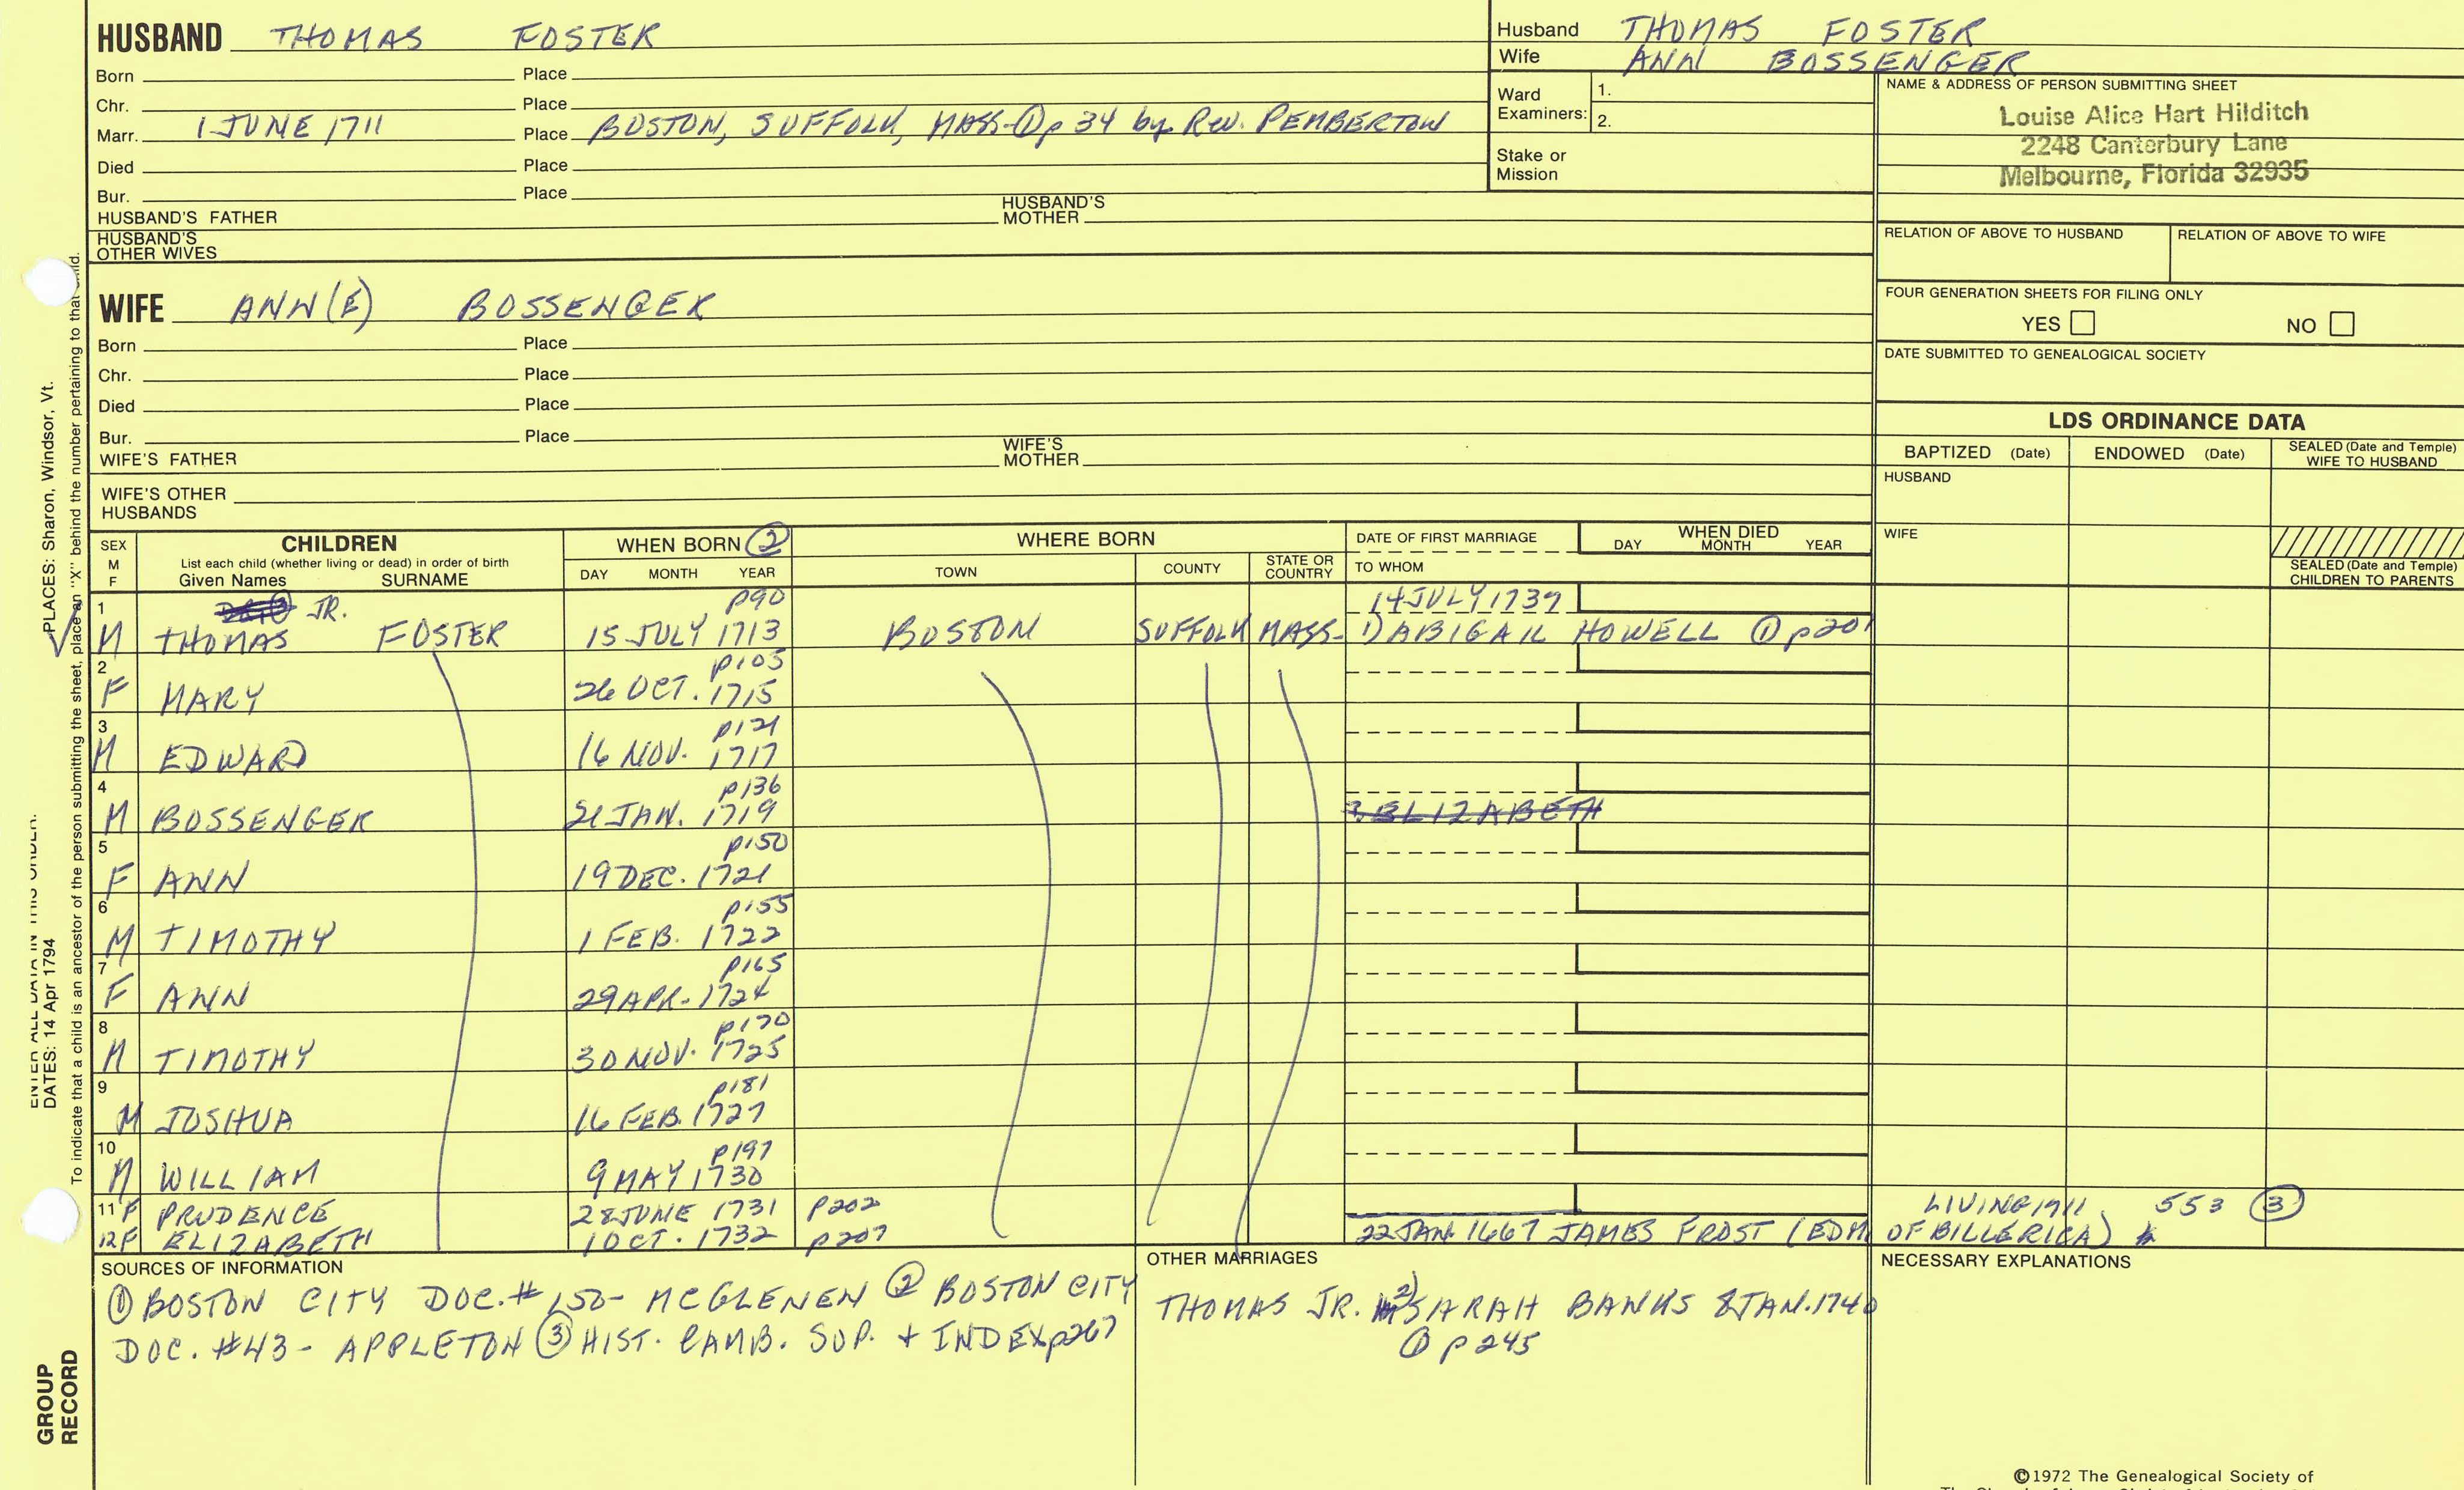 HUSBAND THOMAS FOSTER
Born Place
Chr. Place
Marr. 1 JUNE 1711 Place BOSTON, SUFFOLK, MASS-① p 34 by Rev. PEMBERTON
Died Place
Bur. Place
HUSBAND'S FATHER HUSBAND'S MOTHER
HUSBAND'S
OTHER WIVES
Husband THOMAS FOSTER
Wife ANN BOSSENGER
Ward
Examiners: 1.
2.
Stake or
Mission
NAME & ADDRESS OF PERSON SUBMITTING SHEET
Louise Alice Hart Hilditch
2248 Canterbury Lane
Melbourne, Florida 32935
RELATION OF ABOVE TO HUSBAND RELATION OF ABOVE TO WIFE
FOUR GENERATION SHEETS FOR FILING ONLY
YES NO
DATE SUBMITTED TO GENEALOGICAL SOCIETY
WIFE ANN(E) BOSSENGER
Born Place
Chr. Place
Died Place
Bur. Place
WIFE'S FATHER WIFE'S MOTHER
WIFE'S OTHER
HUSBANDS
LDS ORDINANCE DATA
BAPTIZED (Date) ENDOWED (Date) SEALED (Date and Temple)
WIFE TO HUSBAND
HUSBAND
WIFE
SEALED (Date and Temple)
CHILDREN TO PARENTS
SEX
M
F
CHILDREN
List each child (whether living or dead) in order of birth
Given Names SURNAME
WHEN BORN ②
DAY MONTH YEAR
WHERE BORN
TOWN COUNTY STATE OR COUNTRY
DATE OF FIRST MARRIAGE
TO WHOM
WHEN DIED
DAY MONTH YEAR
1 JR. p90 14 JULY 1739
M THOMAS FOSTER 15 JULY 1713 BOSTON SUFFOLK MASS- 1) ABIGAIL HOWELL ① p201
2 p105
F MARY 26 OCT. 1715
3 p121
M EDWARD 16 NOV. 1717
4 p136
M BOSSENGER 21 JAN. 1719 ELIZABETH
5 p150
F ANN 19 DEC. 1721
6 p155
M TIMOTHY 1 FEB. 1722
7 p165
F ANN 29 APR. 1724
8 p170
M TIMOTHY 30 NOV. 1725
9 p181
M JOSHUA 16 FEB. 1727
10 p197
M WILLIAM 9 MAY 1730
11 F PRUDENCE 28 JUNE 1731 p202 LIVING 1711, 553 ③
12 F ELIZABETH 1 OCT. 1732 p207 22 JAN. 1667 JAMES FROST (EDM OF BILLERICA)
SOURCES OF INFORMATION
① BOSTON CITY DOC. # 150- MCGLENEN ② BOSTON CITY
DOC. #43- APPLETON ③ HIST. CAMB. SUP. + INDEX p267
OTHER MARRIAGES
THOMAS JR. 2) SARAH BANKS 8 JAN. 1740
① p 245
NECESSARY EXPLANATIONS
©1972 The Genealogical Society of
PLACES: Sharon, Windsor, Vt.
DATES: 14 Apr 1794
To indicate that a child is an ancestor of the person submitting the sheet, place an "X" behind the number pertaining to that child.
GROUP
RECORD